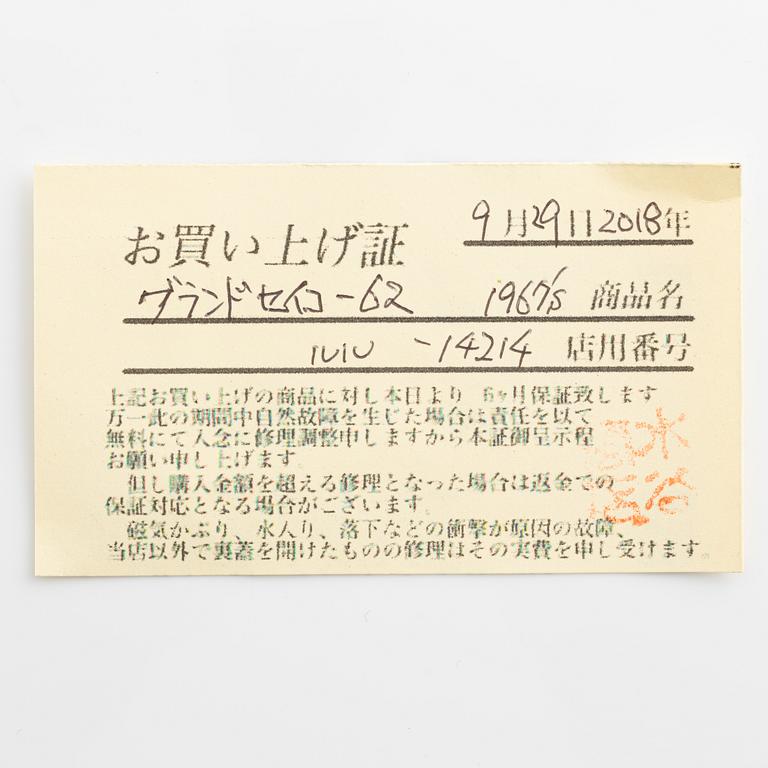 9月29日2018年
お買い上げ証
グランドセイコー62 1967's 商品名
-14214 店用番号
上記お買い上げの商品に対し本日より 6ヶ月保証致します
万一此の期間中自然故障を生じた場合は責任を以て
無料にて入念に修理調整申しますから本証御呈示程
お願い申し上げます。
但し購入金額を超える修理となった場合は返金での
保証対応となる場合がございます。
磁気かぶり、水入り、落下などの衝撃が原因の故障、
当店以外で裏蓋を開けたものの修理はその実費を申し受けます。
水谷